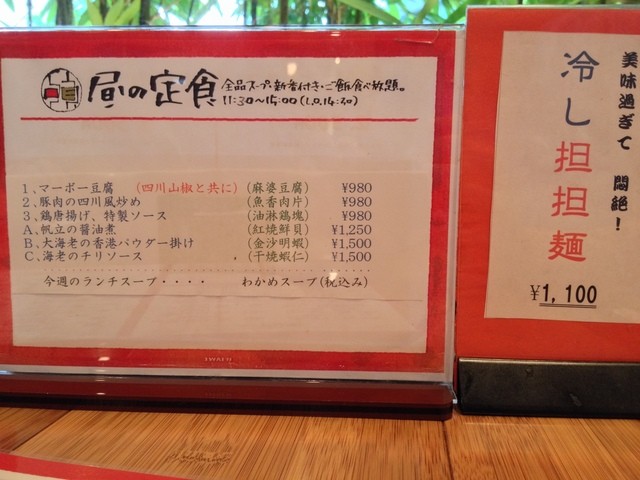 昼の定食
全品スープ、新香付き・ご飯食べ放題。
11:30～15:00(L.O.14:30)
1、マーボー豆腐 (四川山椒と共に) (麻婆豆腐) ¥980
2、豚肉の四川風炒め (魚香肉片) ¥980
3、鶏唐揚げ、特製ソース (油淋鶏塊) ¥980
A、帆立の醤油煮 (紅焼鮮貝) ¥1,250
B、大海老の香港パウダー掛け (金沙明蝦) ¥1,500
C、海老のチリソース (干焼蝦仁) ¥1,500
今週のランチスープ・・・・ わかめスープ(税込み)
美味過ぎて 悶絶！
冷し担担麺
¥1,100